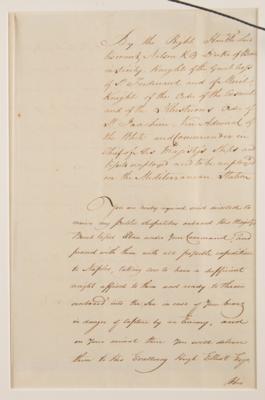 By the Right Honble Lord
Viscount Nelson K B Duke of Bronte
in Sicily, Knight of the Great Cross
of St Ferdinand and of Merit,
Knight of the Order of the Crescent
and of the Illustrious Order of
St Joachim, Vice Admiral of
the Blue and Commander in
Chief of His Majestys Ships and
Vessels employed and to be employed
on the Mediterranean Station
You are hereby required and directed to
receive my public dispatches onboard His Majestys
under Your Command, and
proceed with them with all possible expedition
to Naples, taking care to have a sufficient
weight affixed to them and ready to throw
overboard into the Sea in case of Your being
in danger of Capture by an Enemy, and
on Your arrival there You will deliver
them to His Excellency Hugh Elliott Esqr
His